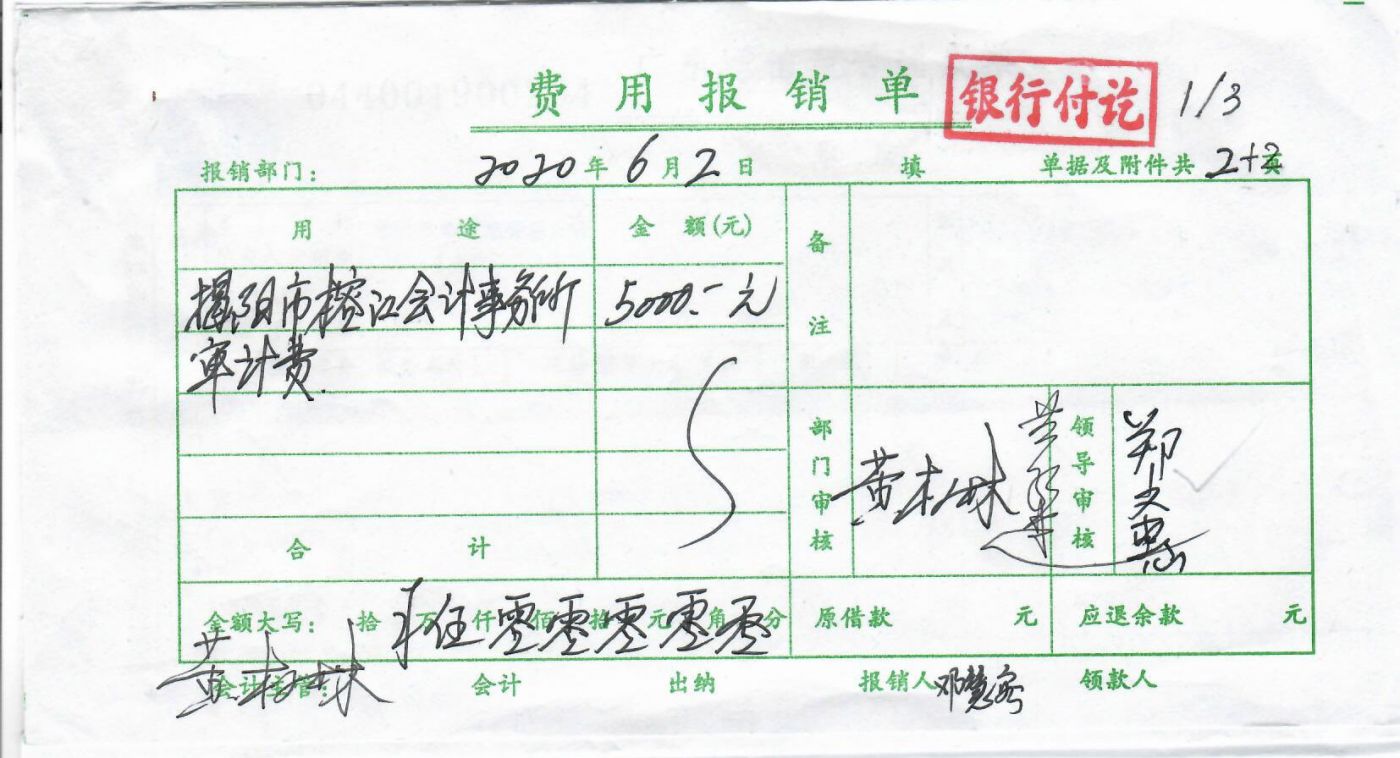 费用报销单 银行付讫 1/3
报销部门: 2020年6月2日 填 单据及附件共2+2页
用途 金额(元) 备注
揭阳市榕江会计事务所 5000.-元
审计费.
部门审核 黄松林 领导审核 郑文惠
合计
金额大写: 拾万伍仟零佰零拾零元零角零分 原借款 元 应退余款 元
会计主管: 黄松林 会计 出纳 报销人 邓慧容 领款人